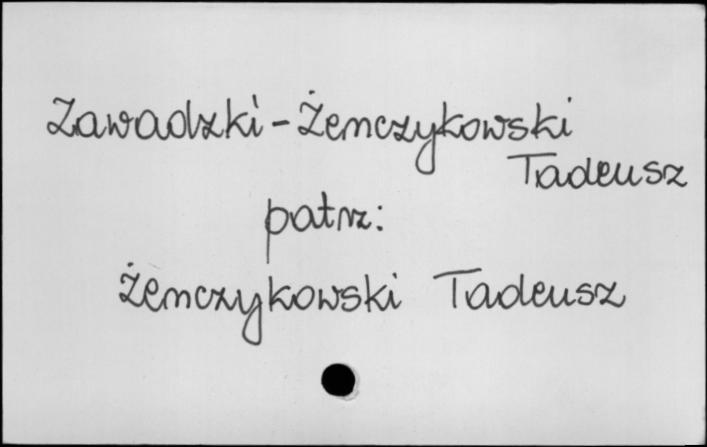 Zawadzki-Żenczykowski
Tadeusz
patrz:
Żenczykowski Tadeusz